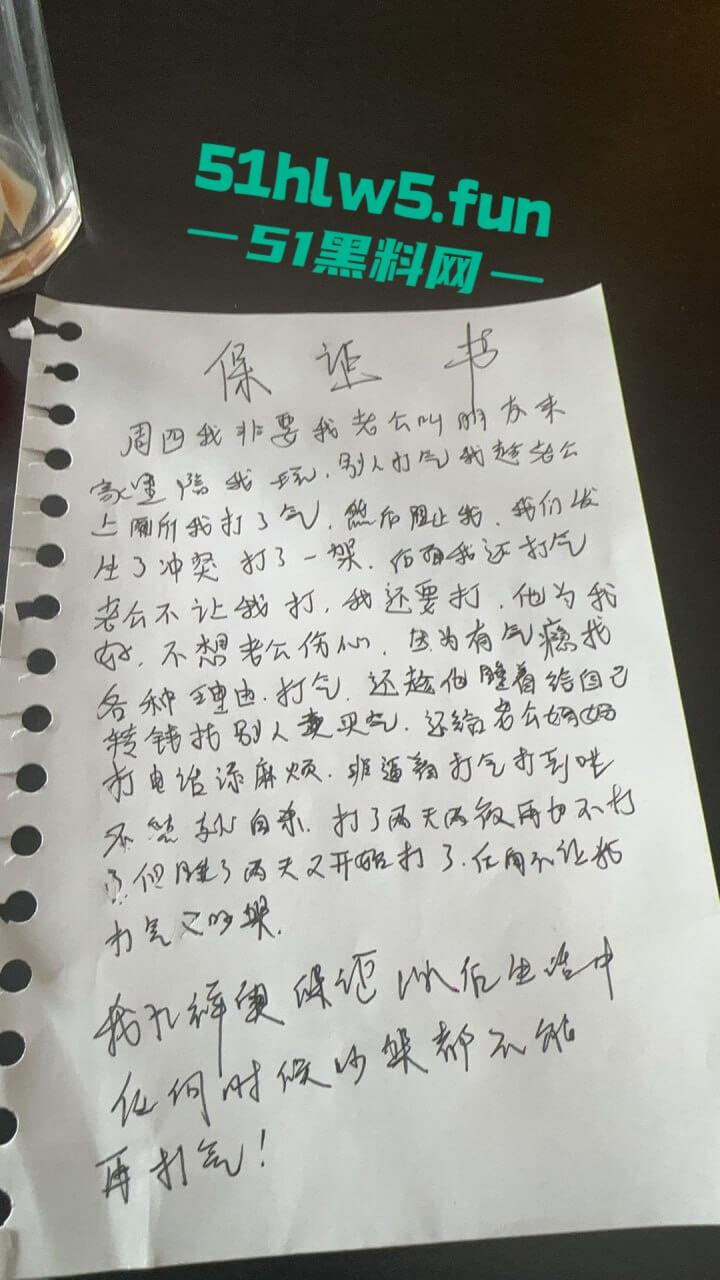 51hlw5.fun
51黑料网
保证书
周四我非要我老公叫朋友来
家里陪我玩,别人打气我趁老公
上厕所我打了气,然后阻止我,我们发
生了冲突 打了一架,后面我还打气
老公不让我打,我还要打,他为我
好,不想老公伤心,因为有气瘾找
各种理由.打气,还趁他睡着给自己
转钱找别人卖买气,还给老公妈妈
打电话添麻烦.非逼着打气打到
不然就自杀.打了两天两夜再也不打
了.但睡了两天又开始打了.不让我
打气又吵架.
我 保证以后生活中
任何时候吵架都不能
再打气!